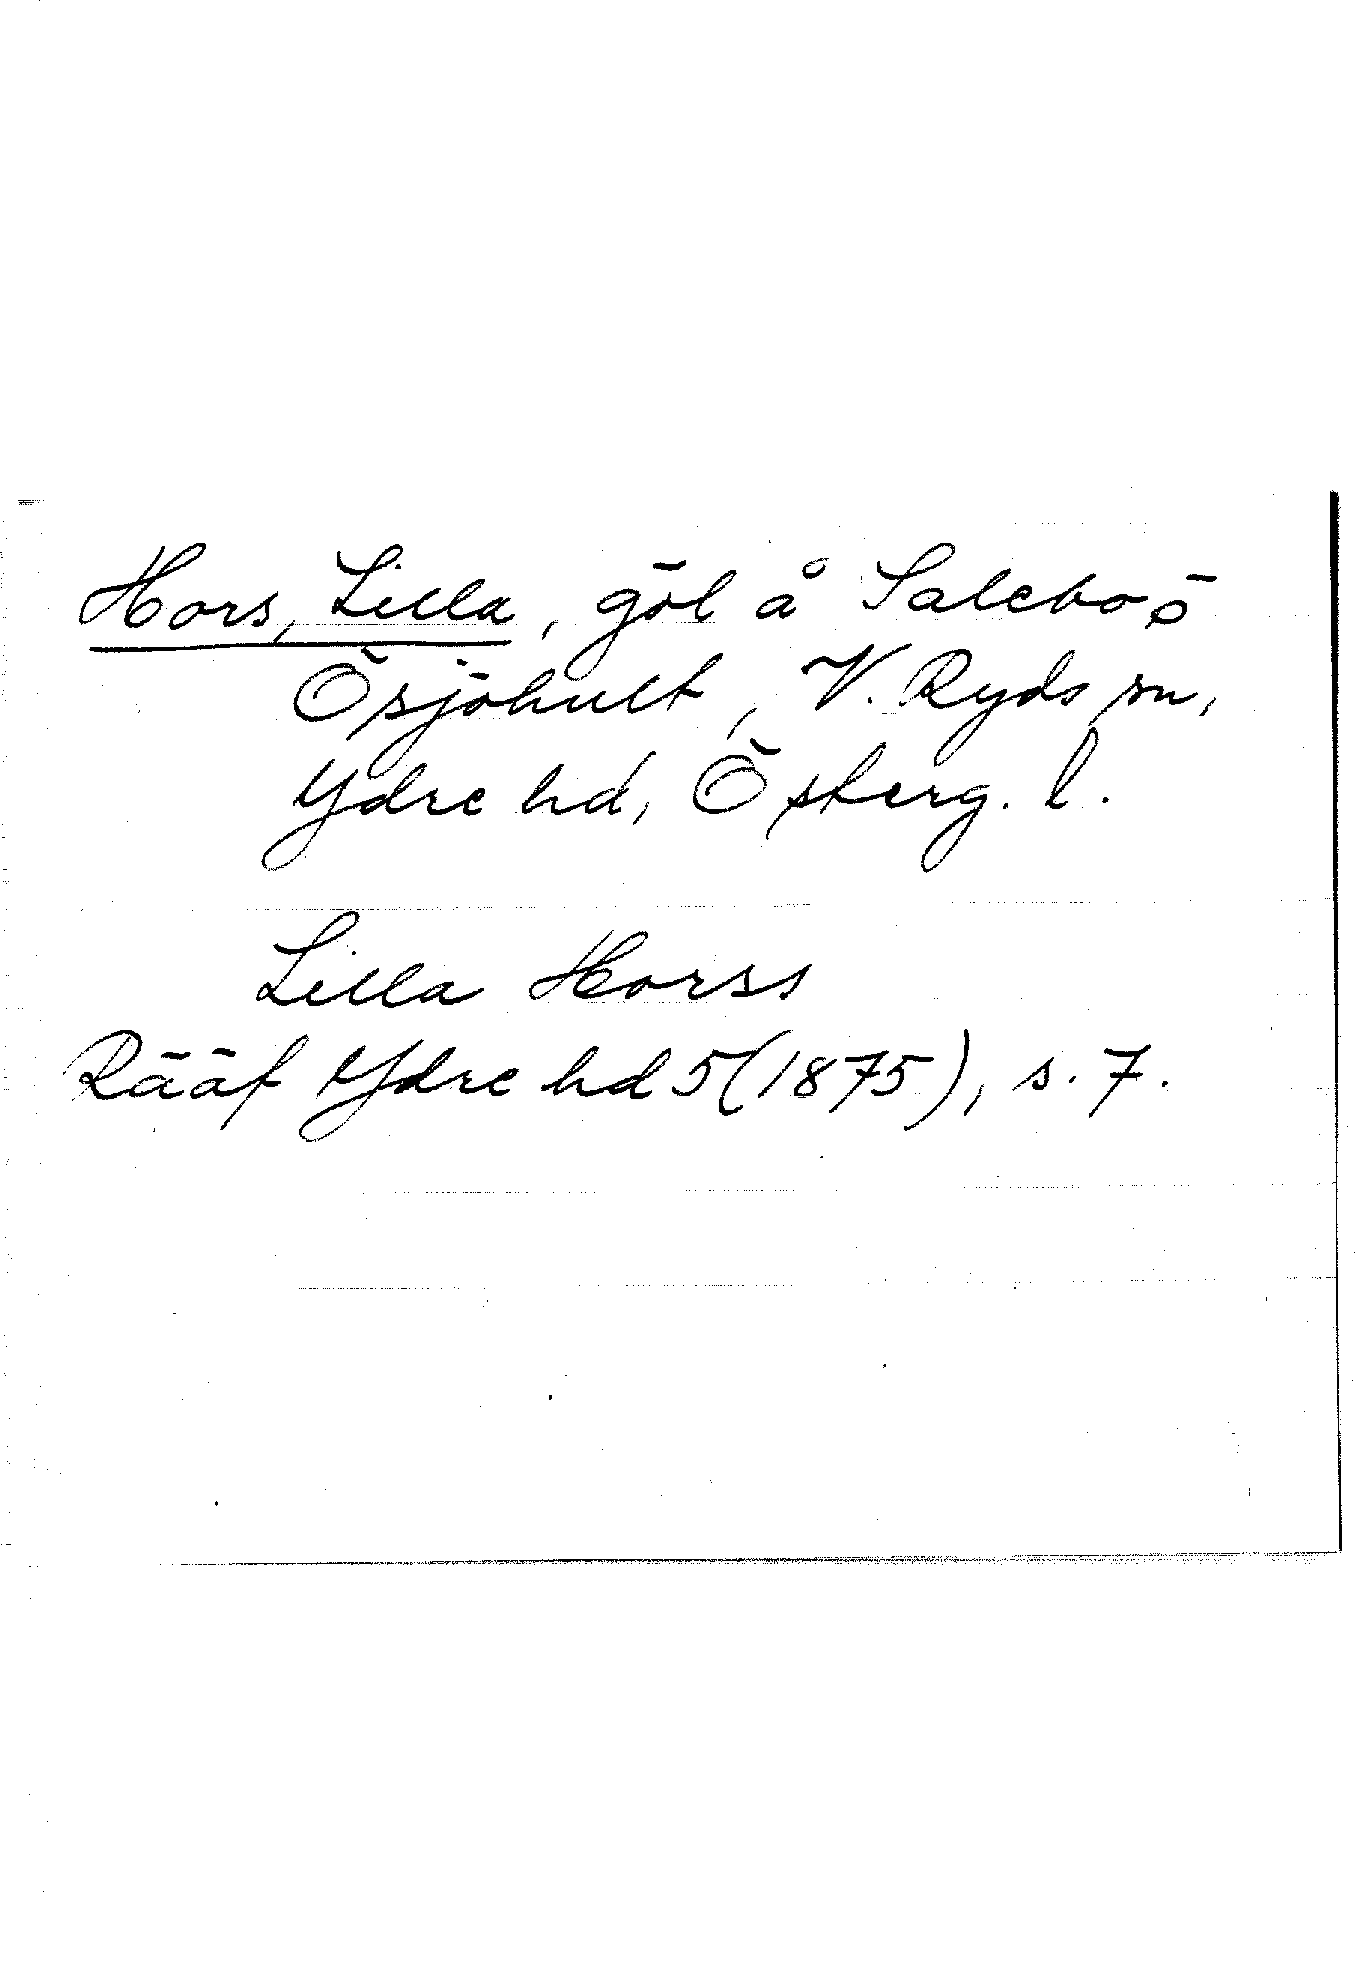 Hors, Lilla, göl å Salebo o
Ösjöhult, V. Ryds sn,
Ydre hd, Österg. l.
Lilla Horss
Rääf Ydre hd 5(1875), s. 7.